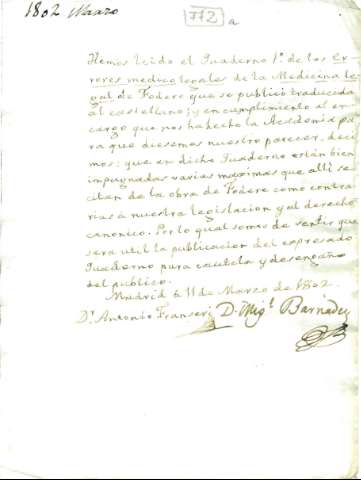 1802 Marzo
772 a
Hemos leido el Quaderno 1º de los Er-
rores medico legales de la Medicina le-
gal de Foderè que se publicó traducida
al castellano; y en cumplimiento al en-
cargo que nos ha hecho la Academia pa-
ra que diesemos nuestro parecer, deci-
mos: que en dicho Quaderno están bien
impugnadas varias maximas que alli se
citan de la obra de Foderè como contra-
rias á nuestra legislacion y al derecho
canonico. Por lo qual somos de sentir que
sera util la publicacion del expresado
Quaderno para cautela y desengaño
del publico.
Madrid á 11 de Marzo de 1802.
Dr. Antonio Franseri D. Migl. Barnades